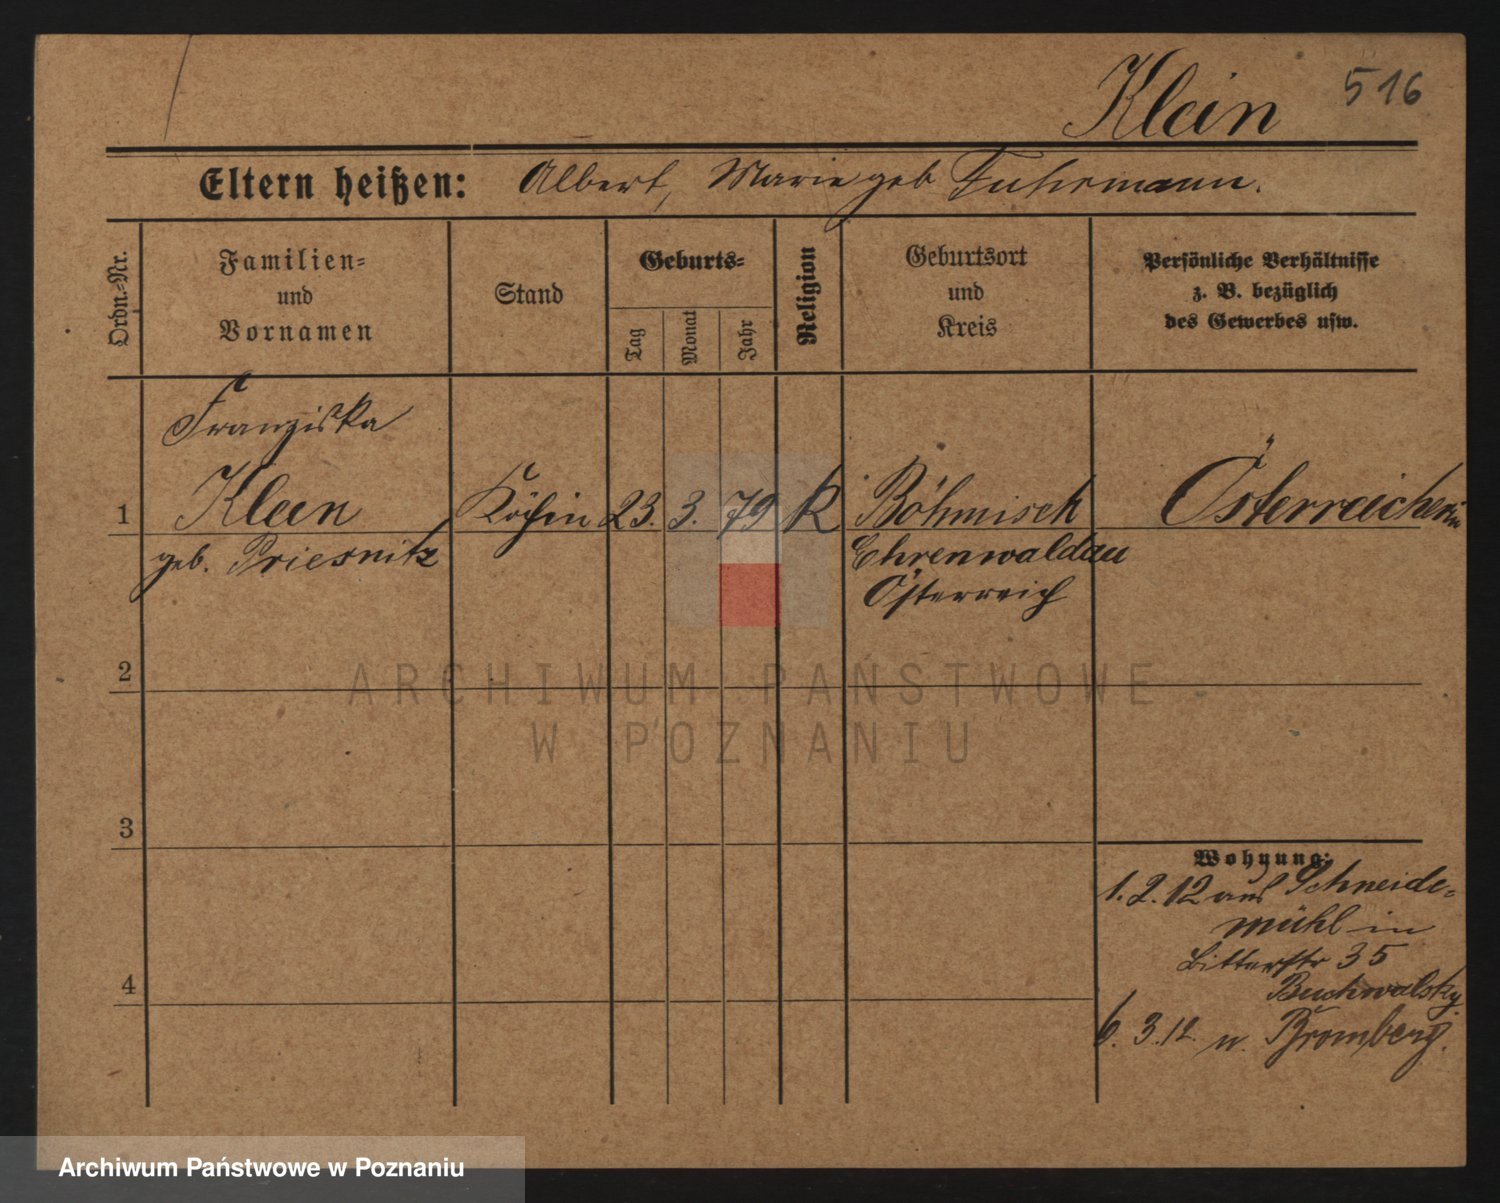 Klein 516
Eltern heißen: Albert, Marie geb Fuhrmann.
Ordn.-Nr.
Familien-
und
Vornamen
Stand
Geburts-
Tag
Monat
Jahr
Religion
Geburtsort
und
Kreis
Persönliche Verhältnisse
z. B. bezüglich
des Gewerbes usw.
Franziska
1 Klein Köchin 23. 3. 79 K Böhmisch Österreicherin
geb. Priesnitz Ehrenwaldau
Österreich
2
3
Wohnung:
1.2.12 aus Schneide-
mühl in
Bitterstr 35
Buchwalsky
4
6.3.12. n. Bromberg.
ARCHIWUM PAŃSTWOWE
W POZNANIU
Archiwum Państwowe w Poznaniu